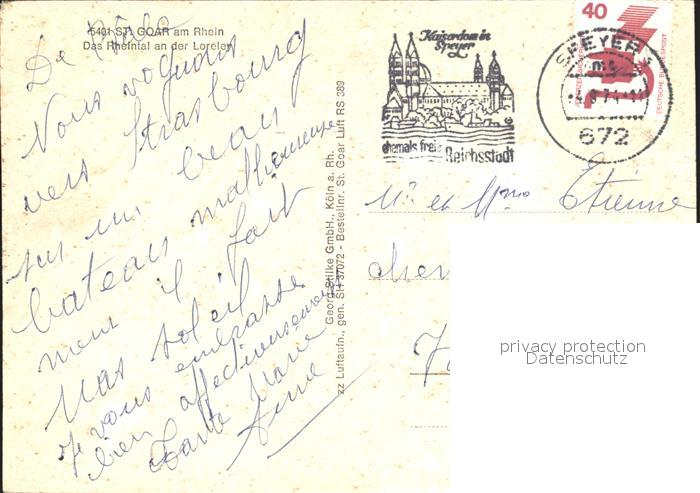 5401 ST. GOAR am Rhein
Das Rheintal an der Loreley
De
Nous voguons
vers Strasbourg
sur un beau
bateau malheureuse
ment il fait
pas soleil
Je vous embrasse
bien affectueusement
Tante Marie
Anne
Georg Stilke GmbH., Köln a. Rh.
zz Luftaufn., gen. SH 37072 - Bestellnr. St. Goar Luft RS 389
Kaiserdom in
Speyer
ehemals freie Reichsstadt
SPEYER
672
40
DEUTSCHE BUNDESPOST
Mr et Mme Etienne
privacy protection
Datenschutz